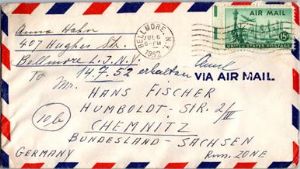 Anna Hahn
407 Hughes Str.
Bellmore L.I. N.Y.
BELLMORE, N.Y.
JUL 6
6-PM
1952
AIR MAIL
15¢
UNITED STATES POSTAGE
To
14.7.52 erhalten
VIA AIR MAIL
Mr. HANS FISCHER
HUMBOLDT-STR. 2/III
(10b)
CHEMNITZ
BUNDESLAND-SACHSEN
GERMANY
Russ. ZONE